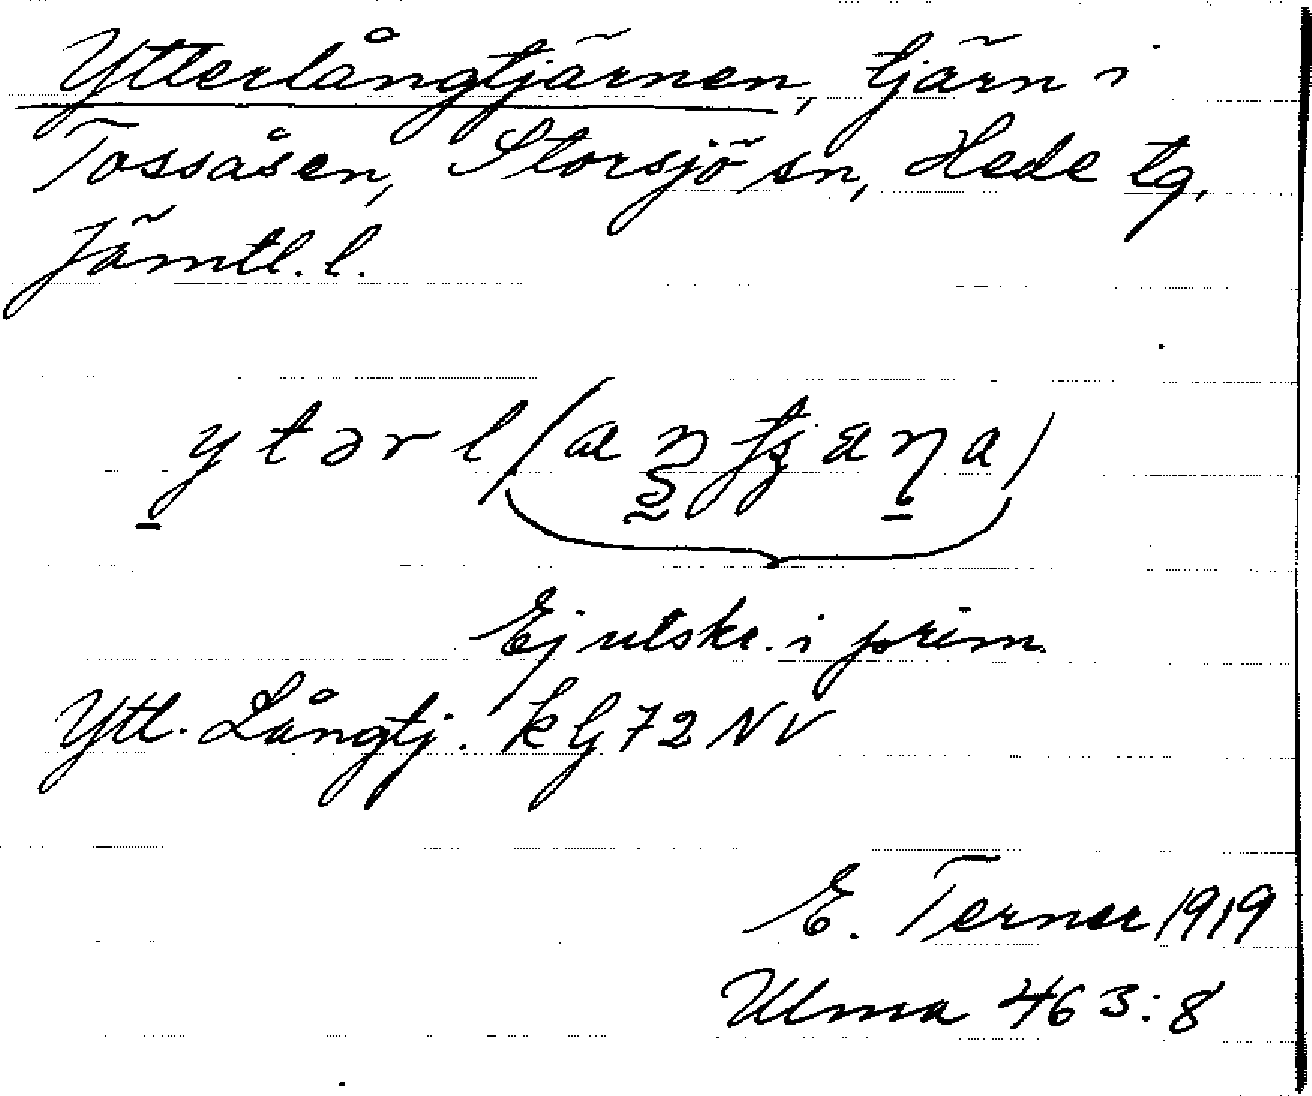 Ytterlångtjärnen, tjärn i
Tossåsen, Storsjö sn, Hede tg,
Jämtl. l.
ytərl
Ej utskr. i prim.
Ytt. Långtj. k lj 72 NV
E. Terner 1919
Ulma 463:8